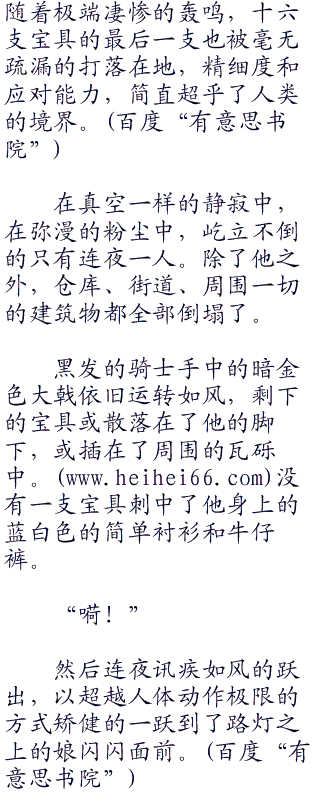 随着极端凄惨的轰鸣，十六
支宝具的最后一支也被毫无
疏漏的打落在地，精细度和
应对能力，简直超乎了人类
的境界。(百度“有意思书
院”)
在真空一样的静寂中，
在弥漫的粉尘中，屹立不倒
的只有连夜一人。除了他之
外，仓库、街道、周围一切
的建筑物都全部倒塌了。
黑发的骑士手中的暗金
色大戟依旧运转如风，剩下
的宝具或散落在了他的脚
下，或插在了周围的瓦砾
中。(www.heihei66.com)没
有一支宝具刺中了他身上的
蓝白色的简单衬衫和牛仔
裤。
“嗬！”
然后连夜讯疾如风的跃
出，以超越人体动作极限的
方式矫健的一跃到了路灯之
上的娘闪闪面前。(百度“有
意思书院”)